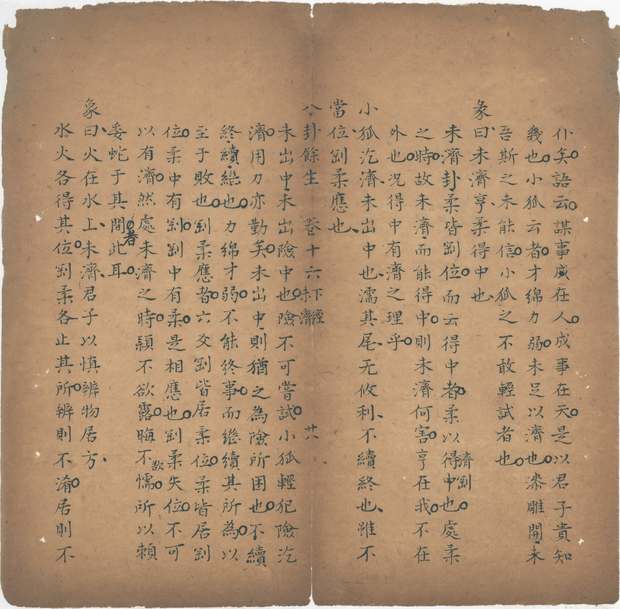 仆矣語云謀事廣在人成事在天是以君子貴知
幾也小狐云者才綿力弱未足以濟也漆雕開未
吾斯之未能信小狐之不敢輕試者也
彖曰未濟亨柔得中也
未濟卦柔皆剛位而云得中者柔以得濟剛中也處柔
之時故未濟而能得中則未濟何害亨在我不在
外也況得中有濟之理乎
小狐汔濟未出中也濡其尾无攸利不續終也雖不
當位剛柔應也
八卦餘生 卷十六 下經 未濟 廿八
未出中未出險中也險不可嘗試小狐輕犯險汔
濟用力亦勤矣未出中則猶之為險所困也不續
終續繼也力綿才弱不能終事而繼續其所為以
至于敗也剛柔應者六爻剛皆居柔位柔皆居剛
位柔中有剛剛中有柔是相應也剛柔失位不可
以有濟然處未濟之時穎不欲露晦不欲懦所以賴
委蛇于其間者此耳
象曰火在水上未濟君子以慎辨物居方
水火各得其位剛柔各止其所辨則不淆居則不